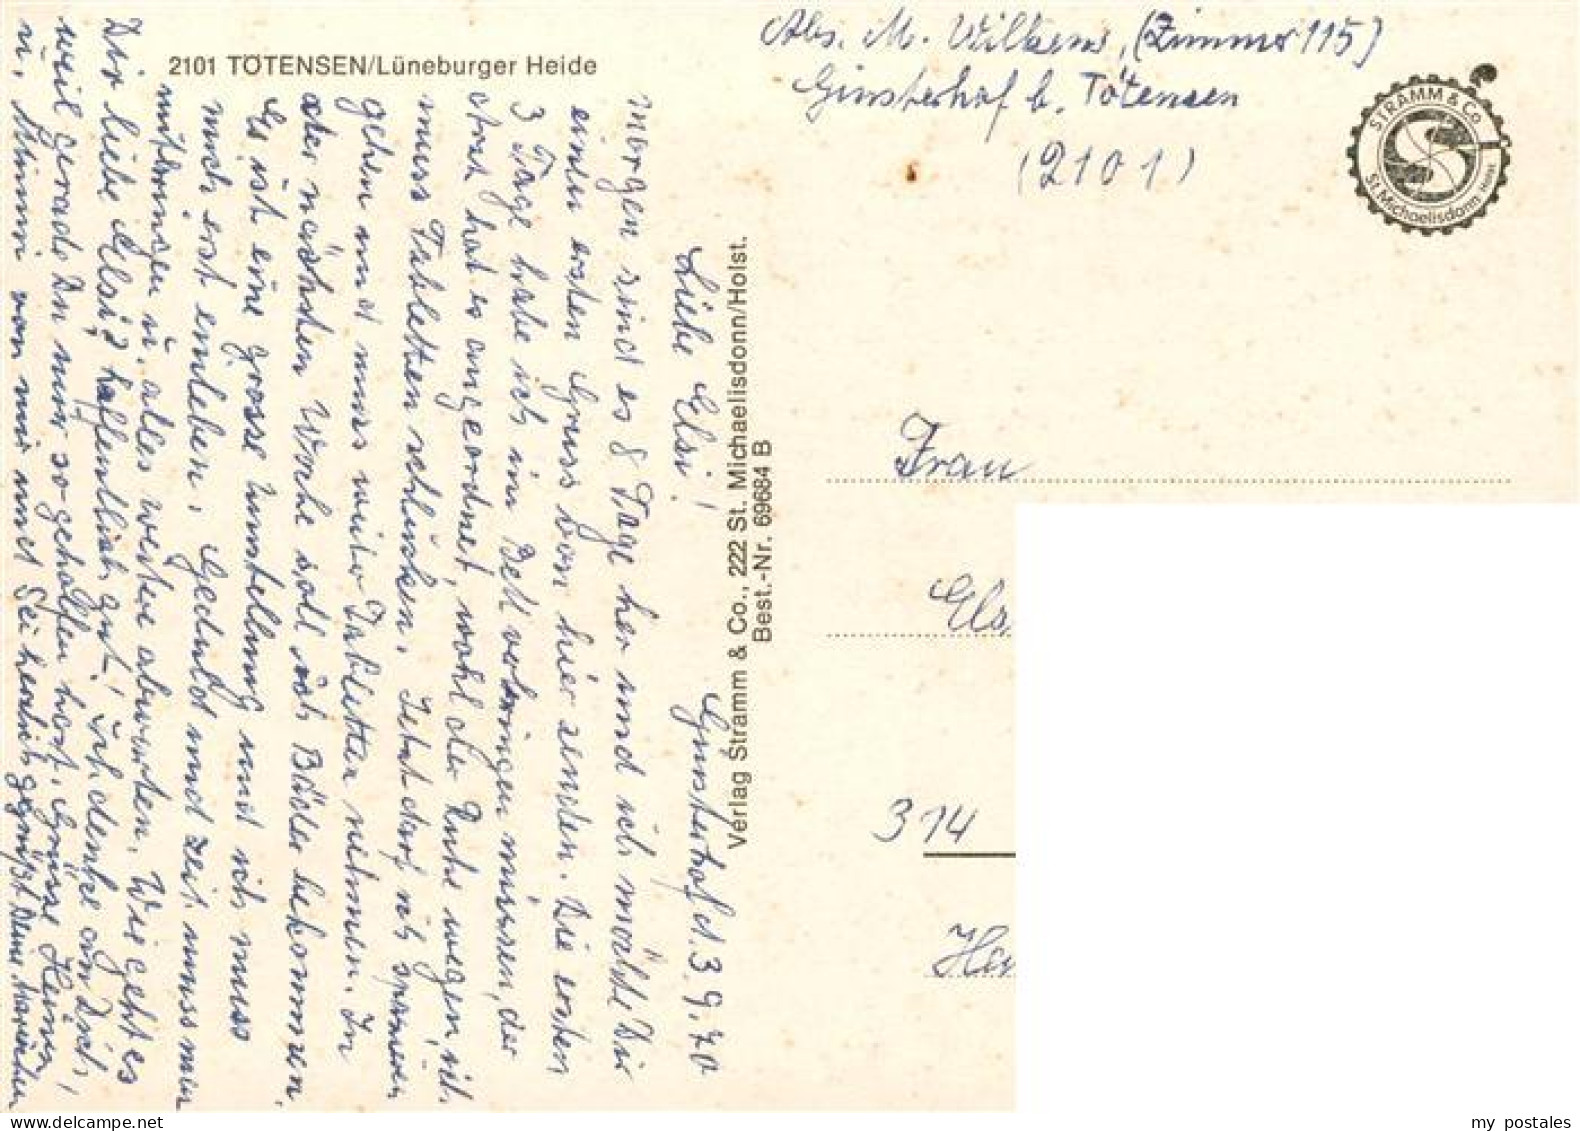 2101 TÖTENSEN/Lüneburger Heide
Abs. M. Wilkens, (Zimmer 115)
Ginsterhof b. Tötensen
(2101)
STRAMM & Co.
St. Michaelisdonn /Holst.
Ginsterhof d. 3.9.70
Liebe Elsi!
Morgen sind es 8 Tage her und ich möchte Dir
einen ersten Gruss von hier senden. Die ersten
3 Tage habe ich im Bett verbringen müssen, der
Arzt hat es angeordnet, wohl der Ruhe wegen, ich
muss Tabletten schlucken. Jetzt darf ich spazieren
gehen und muss weiter Tabletten nehmen. In
der nächsten Woche soll ich Bäder bekommen.
Es ist eine grosse Umstellung und ich muss
mich erst einleben. Geduld und Zeit muss man
mitbringen u. alles weitere abwarten. Wie geht es
Dir liebe Elsi? hoffentlich gut! Ich denke an Dich,
weil gerade Du mir so geholfen hast. Grüsse Heini
u. Mimi von mir und Sei herzlich gegrüßt Deine Mariechen
Verlag Stramm & Co., 222 St. Michaelisdonn/Holst.
Best.-Nr. 69684 B
Frau
Els
314
Han
my postales